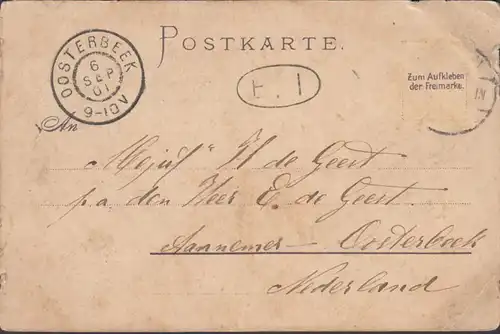 POSTKARTE.
OOSTERBEEK
6
SEP
01
9-10V
F. 1
Zum Aufkleben
der Freimarke.
An
Mejuf" H de Geert
p.a. den Heer E. de Geert
Aannemer - Oosterbeek
Nederland